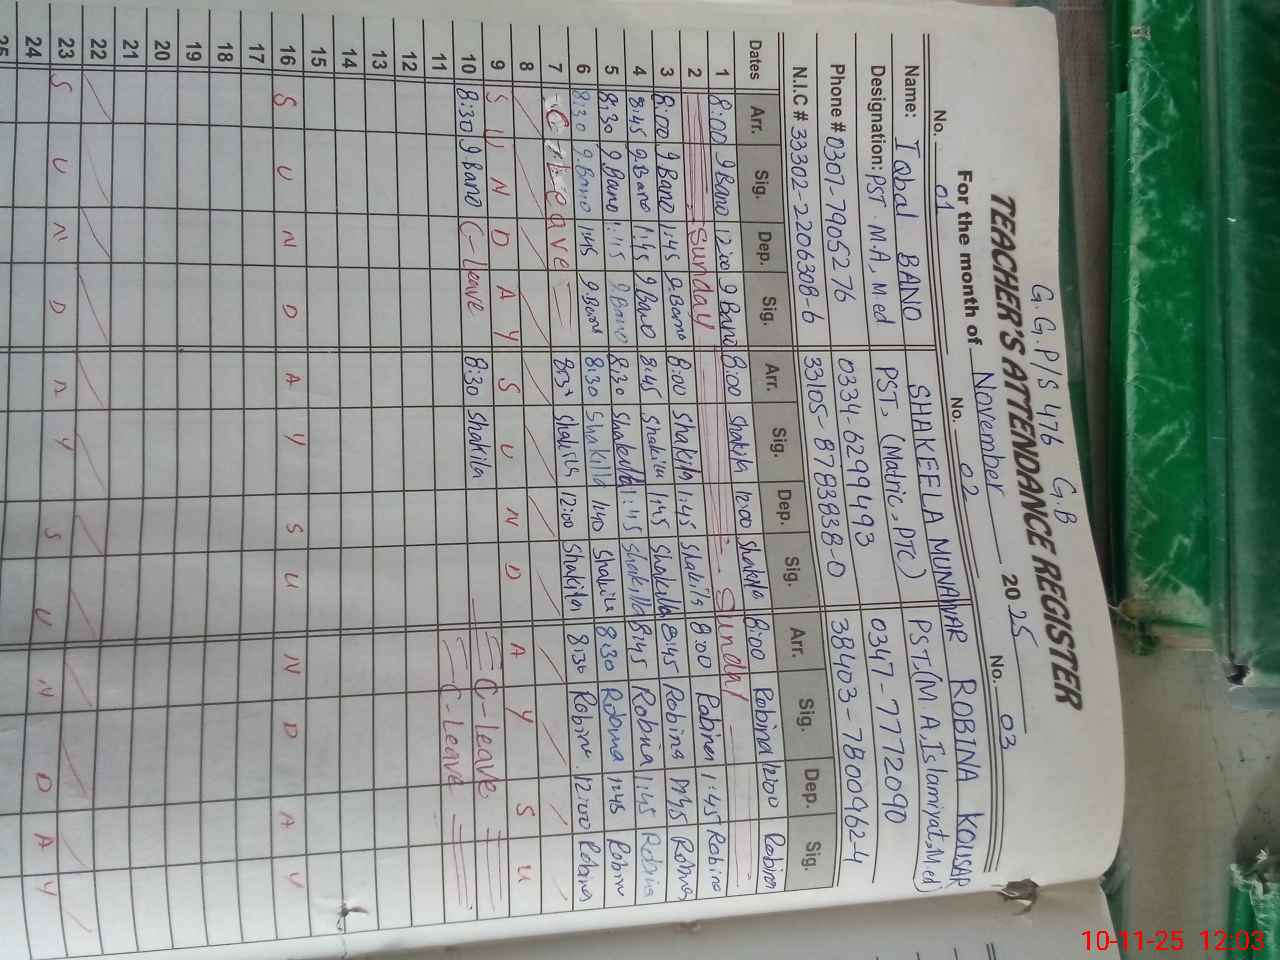 G.G.P/S 476 G.B
TEACHER'S ATTENDANCE REGISTER
For the month of November 2025
No. 01 No. 02 No. 03
Name: Iqbal BANO SHAKEELA MUNAWAR ROBINA KOUSAR
Designation: PST. M.A, M.ed PST, (Matric, PTC) PST, (M.A, Islamiyat, M.ed)
Phone # 0307-7905276 0334-6299493 0347-7772090
N.I.C # 33302-2206308-6 33105-8783838-0 38403-7800962-4
Dates Arr. Sig. Dep. Sig. Arr. Sig. Dep. Sig. Arr. Sig. Dep. Sig.
1 8:00 9 Bano 12:00 9 Bano 8:00 Shakila 12:00 Shakila 8:00 Robina 12:00 Robina
2 Sunday Sunday
3 8:00 9 Bano 1:45 9 Bano 8:00 Shakila 1:45 Shakila 8:00 Robina 1:45 Robina
4 8:45 9 Bano 1:45 9 Bano 8:45 Shakila 1:45 Shakilla 8:45 Robina Robina
5 8:30 9 Bano 1:15 9 Bano 8:30 Shakilla 1:45 Shakilla 8:45 Robina 1:45 Robina
6 8:30 9 Bano 1:45 9 Bano 8:30 Shakilla 1:40 Shakila 8:30 Robina 1:45 Robina
7 C-leave Shakila 12:00 Shakila 8:30 Robina 12:00 Robina
8
9 S U N D A Y S U N D A Y S U
10 8:30 9 Bano C-leave 8:30 Shakila C-leave
11 C-leave
12
13
14
15
16 S U N D A Y S U N D A Y
17
18
19
20
21
22
23 S U N D A Y S U N D A Y
24
25
10-11-25 12:03